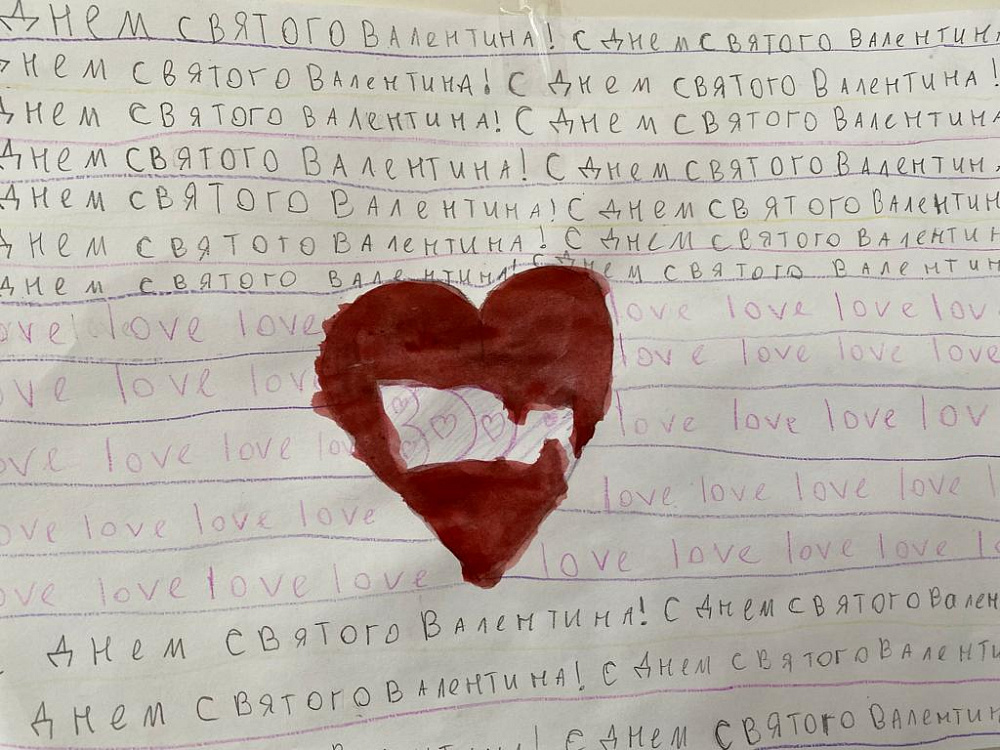 Днем святого Валентина! С Днем святого Валентин
Днем святого Валентина! С Днем святого Валентина!
Днем святого Валентина! С Днем святого Валентина
Днем святого Валентина! С Днем святого Валентин
Днем святого Валентина! С Днем святого Валентин
Днем святого Валентина! С Днем святого Валентин
Днем святого Валентина! С Днем святого Валентин
ove love love love love love lov
ove love lov love love love love
ove love love lo love love love lov
ove love love love love love love love l
ove love love love love love love love lo
Днем святого Валентина! С Днем святого Вален
Днем святого Валентина! С Днем святого Валенти
! С Днем святого Валентин